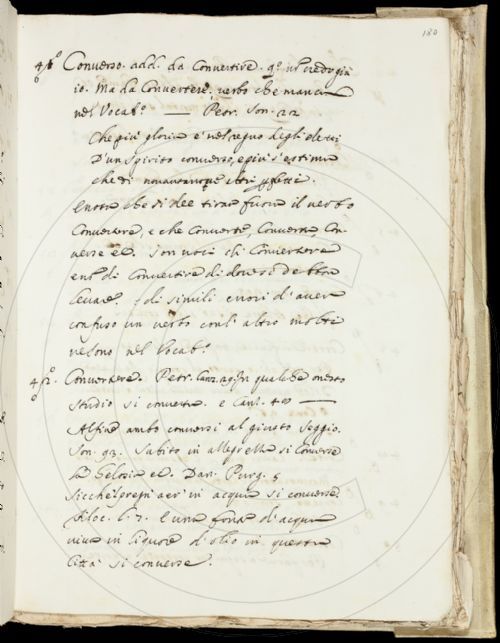 180
Converso. add. da Convertire. q.º n'l credo già
io. Ma da Convertere, verbo che manca
nel Vocab.º — Petr. Son. 22
Che più gloria è nel regno degli eletti
D'un spirito converso, e più s'estima
che di novantanove altri perfetti.
e nota che si dee tirar fuora il verbo
Convertere, e che Converte, Converta, Con-
verse ec. son voci di Convertere
e nõ di Convertire di dove si debbon
levare. e di simili errori d'aver
confuso un verbo con l'altro molti
ne sono nel Vocab.º
Convertere. Petr. Canz. qual ha onesto
studio si converta. e Canz.
Alfine ambo conversi al giusto seggio.
Son. 93. Subito in allegrezza si converse
La Gelosia ec. Dan. Purg. 5
Sicche'l pregno aer in acqua si converse.
l. 7. E una d'acqua
viva in liquore d'olio in questa
Città si converse.